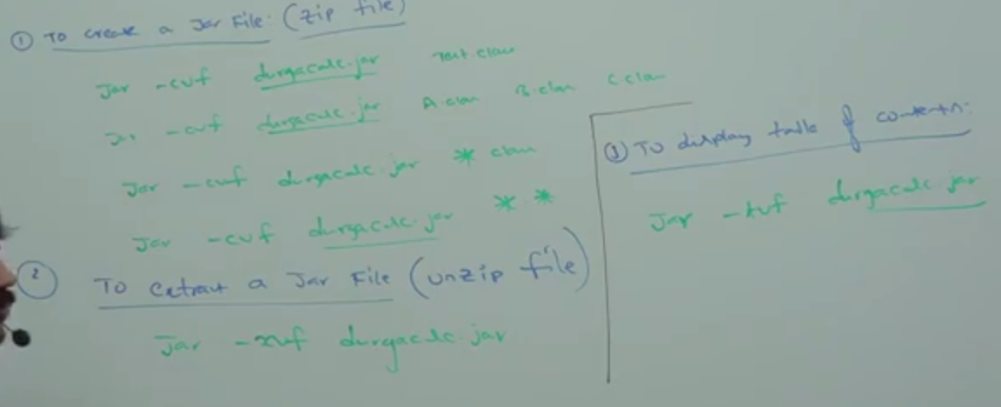 ① To create a Jar File: (zip file)
Jar -cvf durgacalc.jar Test.class
Jar -cvf durgacalc.jar A.class B.class C.class
Jar -cvf durgacalc.jar *.class
Jar -cvf durgacalc.jar *.*
② To Extract a Jar File (unzip file)
Jar -xvf durgacalc.jar
③ To display table of contents:
Jar -tvf durgacalc.jar